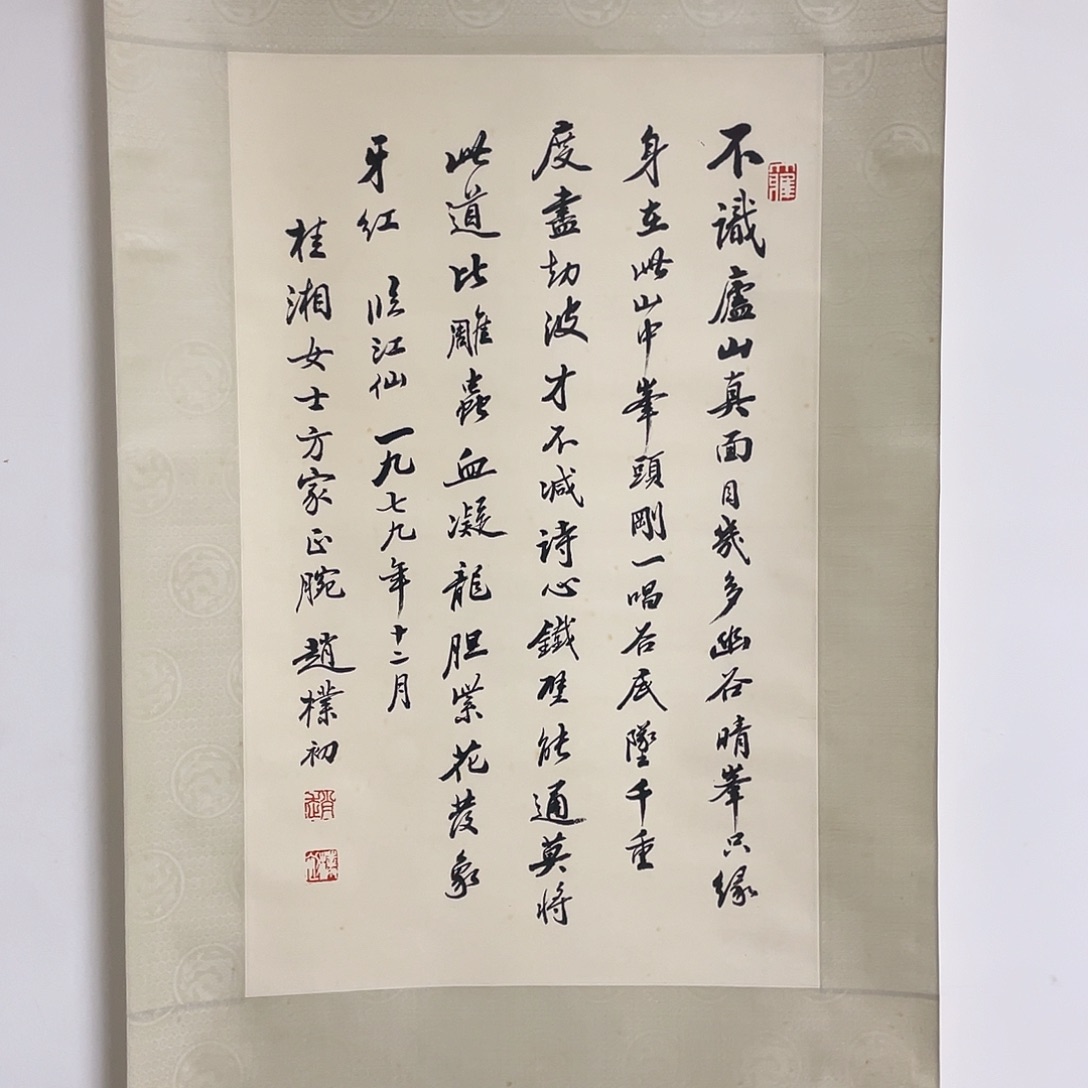 不識廬山真面目幾多幽谷晴峯只緣
身在此山中峯頭剛一唱谷底墜千重
度盡劫波才不減詩心鐵壁能通莫將
此道比雕蟲血凝龍胆紫花發象
牙紅 臨江仙 一九七九年十二月
桂湘女士方家正腕 趙樸初